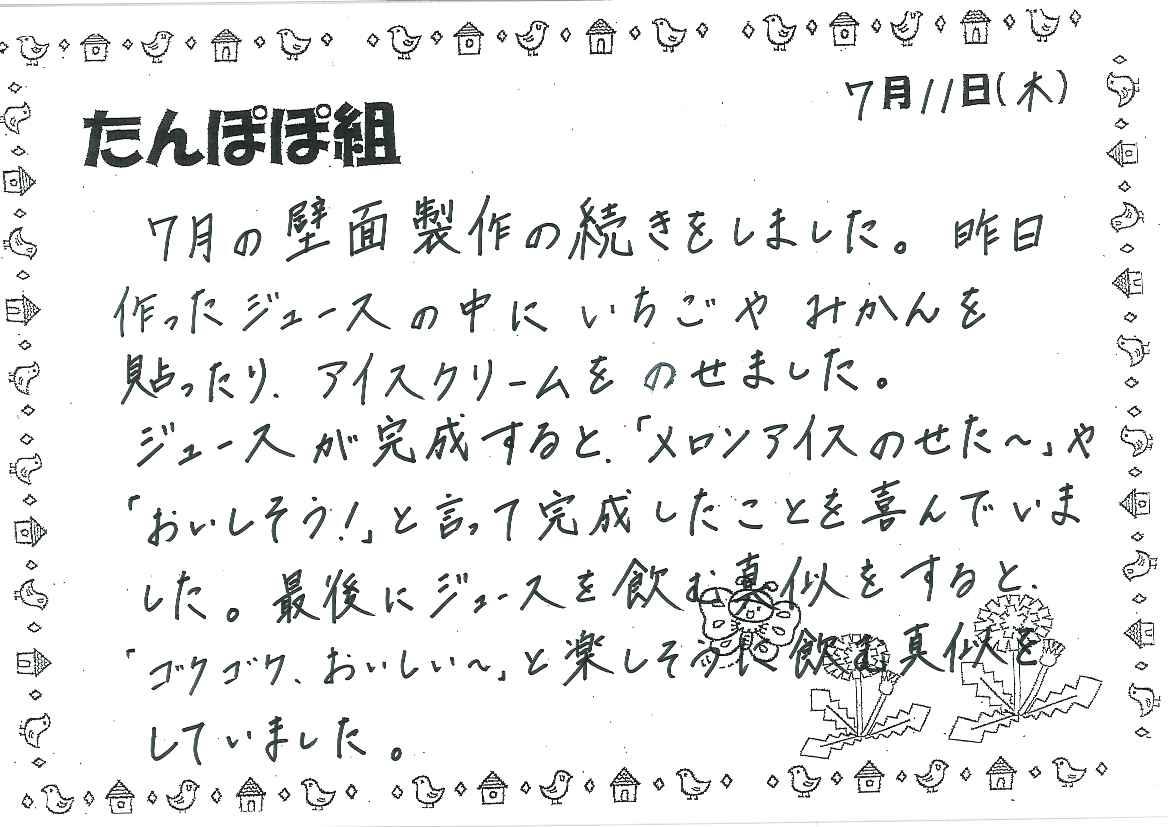 7月11日(木)
たんぽぽ組
7月の壁面製作の続きをしました。昨日
作ったジュースの中にいちごやみかんを
貼ったり、アイスクリームをのせました。
ジュースが完成すると、「メロンアイスのせた～」や
「おいしそう!」と言って完成したことを喜んでいま
した。最後にジュースを飲む真似をすると、
「ゴクゴク、おいしい～」と楽しそうに飲む真似を
していました。